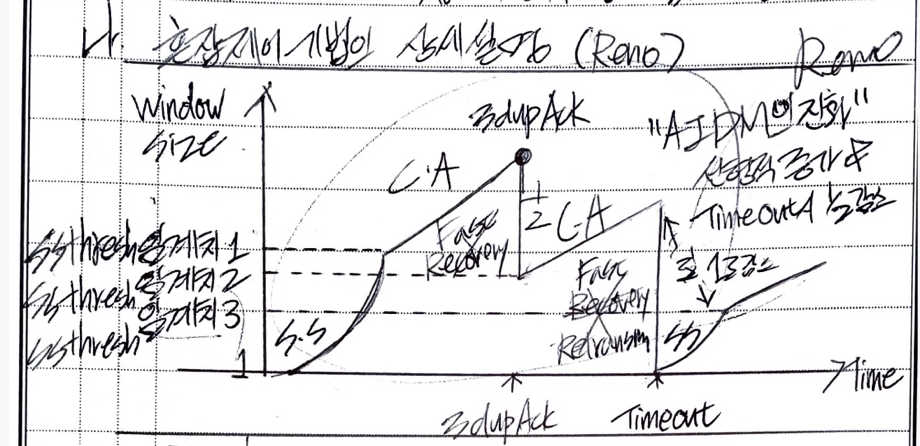 나 혼잡제어기법의 상세설명 (Reno)
Reno
Window
Size
3dupAck
"AIDM의 진화"
선형적 증가 &
TimeoutA
C.A
1/2
CA
Fast
Recovery
로 감소
ssthresh 임계치 1
ssthresh 임계치 2
ssthresh 임계치 3
Fast
Recovery
Retransm
S.S
SS
1
Time
3dupAck
Timeout